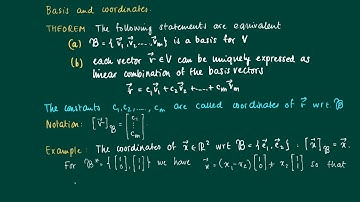 Basis and coordinates.
THEOREM The following statements are equivalent
(a) B = { v⃗₁, v⃗₂, ..., v⃗ₘ } is a basis for V
(b) each vector v⃗ ∈ V can be uniquely expressed as
linear combination of the basis vectors
v⃗ = c₁v⃗₁ + c₂v⃗₂ + .... + cₘv⃗ₘ
The constants c₁, c₂, ..., cₘ are called coordinates of v⃗ wrt B.
Notation: [v⃗]_B = [c₁ c₂ ⋮ cₘ]
Example: The coordinates of x⃗ ∈ ℝ² wrt B = { e⃗₁, e⃗₂ } : [x⃗]_B = x⃗.
For B* = { [1 0], [1 1] } we have x⃗ = (x₁-x₂) [1 0] + x₂ [1 1] so that